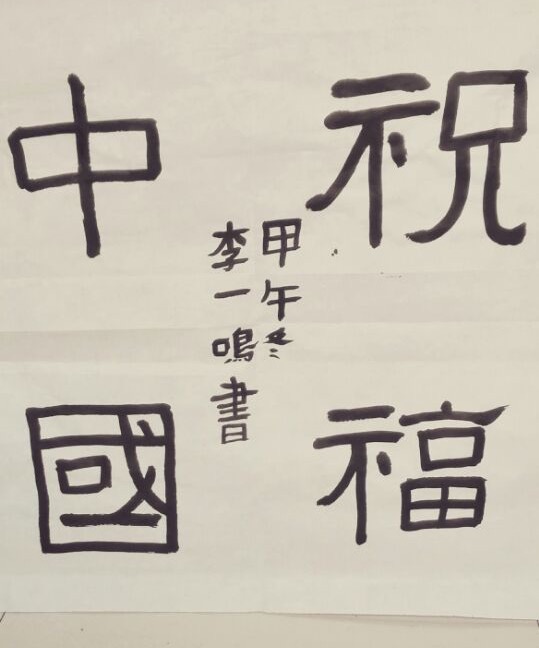 祝福
中國
甲午冬
李一鳴書